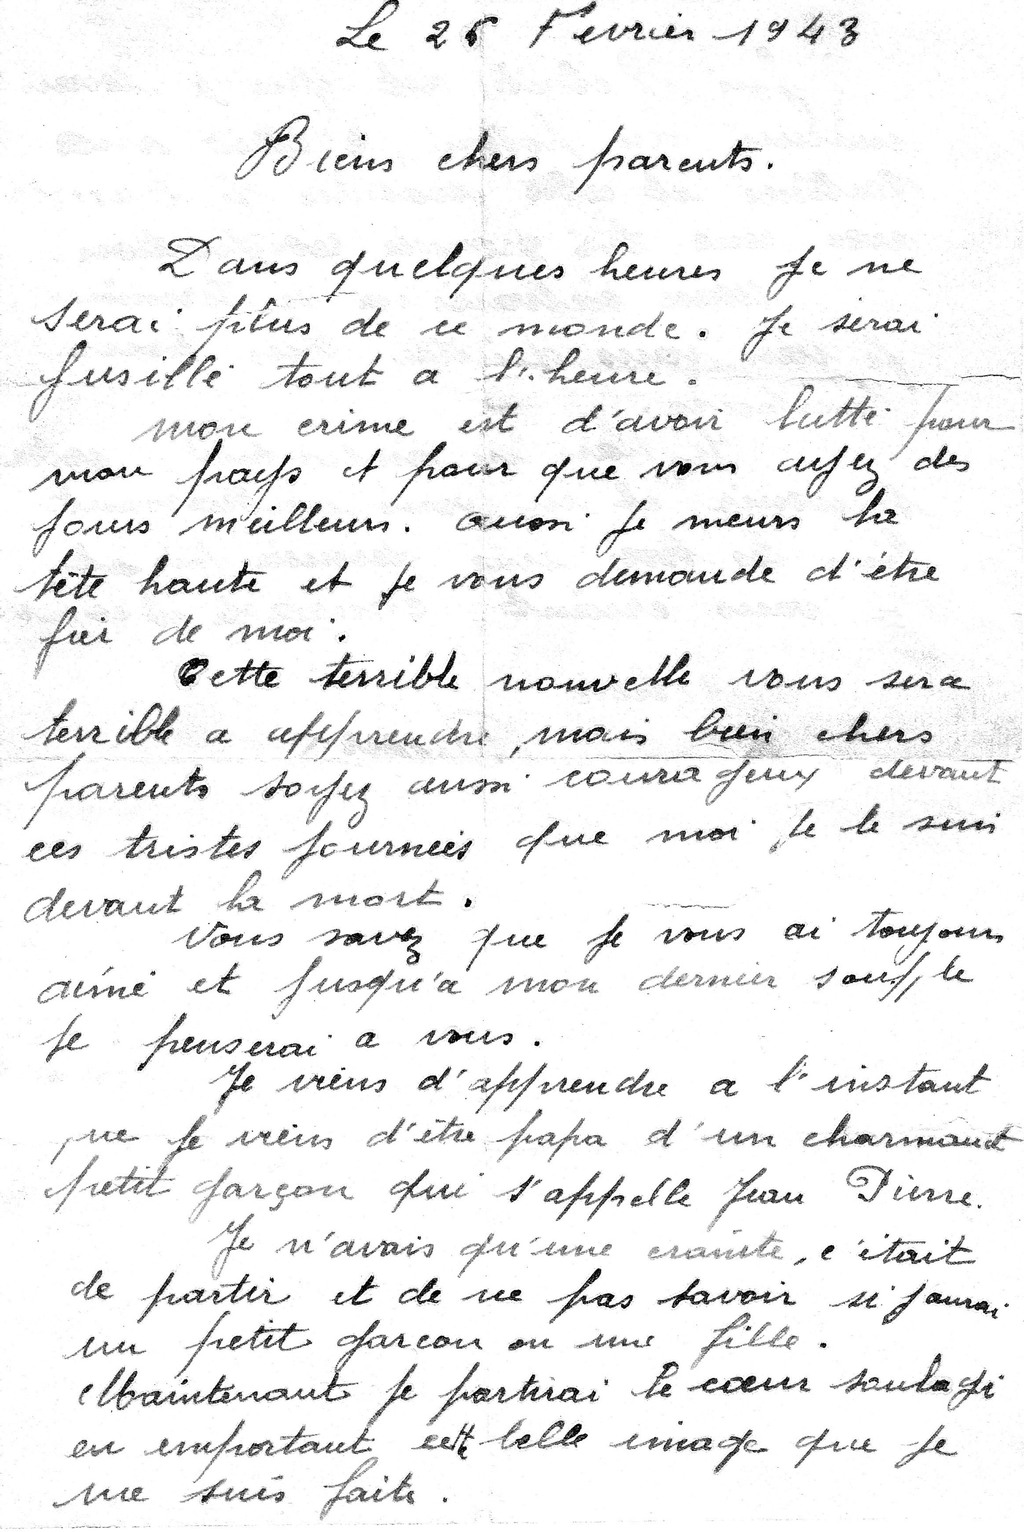 Le 26 Fevrier 1943
Biens chers parents.
Dans quelques heures je ne
serai plus de ce monde. Je serai
fusillé tout a l'heure.
mon crime est d'avoir lutté pour
mon pays et pour que vous ayez des
jours meilleurs. aussi je meurs la
tête haute et je vous demande d'être
fier de moi.
Cette terrible nouvelle vous sera
terrible a apprendre, mais bien chers
parents soyez aussi courageux devant
ces tristes journées que moi je le suis
devant la mort.
Vous savez que je vous ai toujours
aimé et jusqu'a mon dernier souffle
je penserai a vous.
Je viens d'apprendre a l'instant
que je viens d'être papa d'un charmant
petit garçon qui s'appelle Jean Pierre.
Je n'avais qu'une crainte, c'était
de partir et de ne pas savoir si j'aurai
un petit garcon ou une fille.
Maintenant je partirai le cœur soulagé
en emportant cette belle image que je
me suis faite.